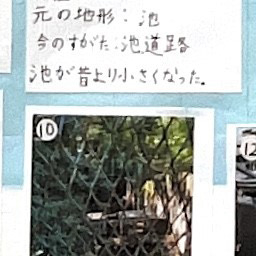 元の地形：池
今のすがた：池道路
池が昔より小さくなった。
⑩
⑫